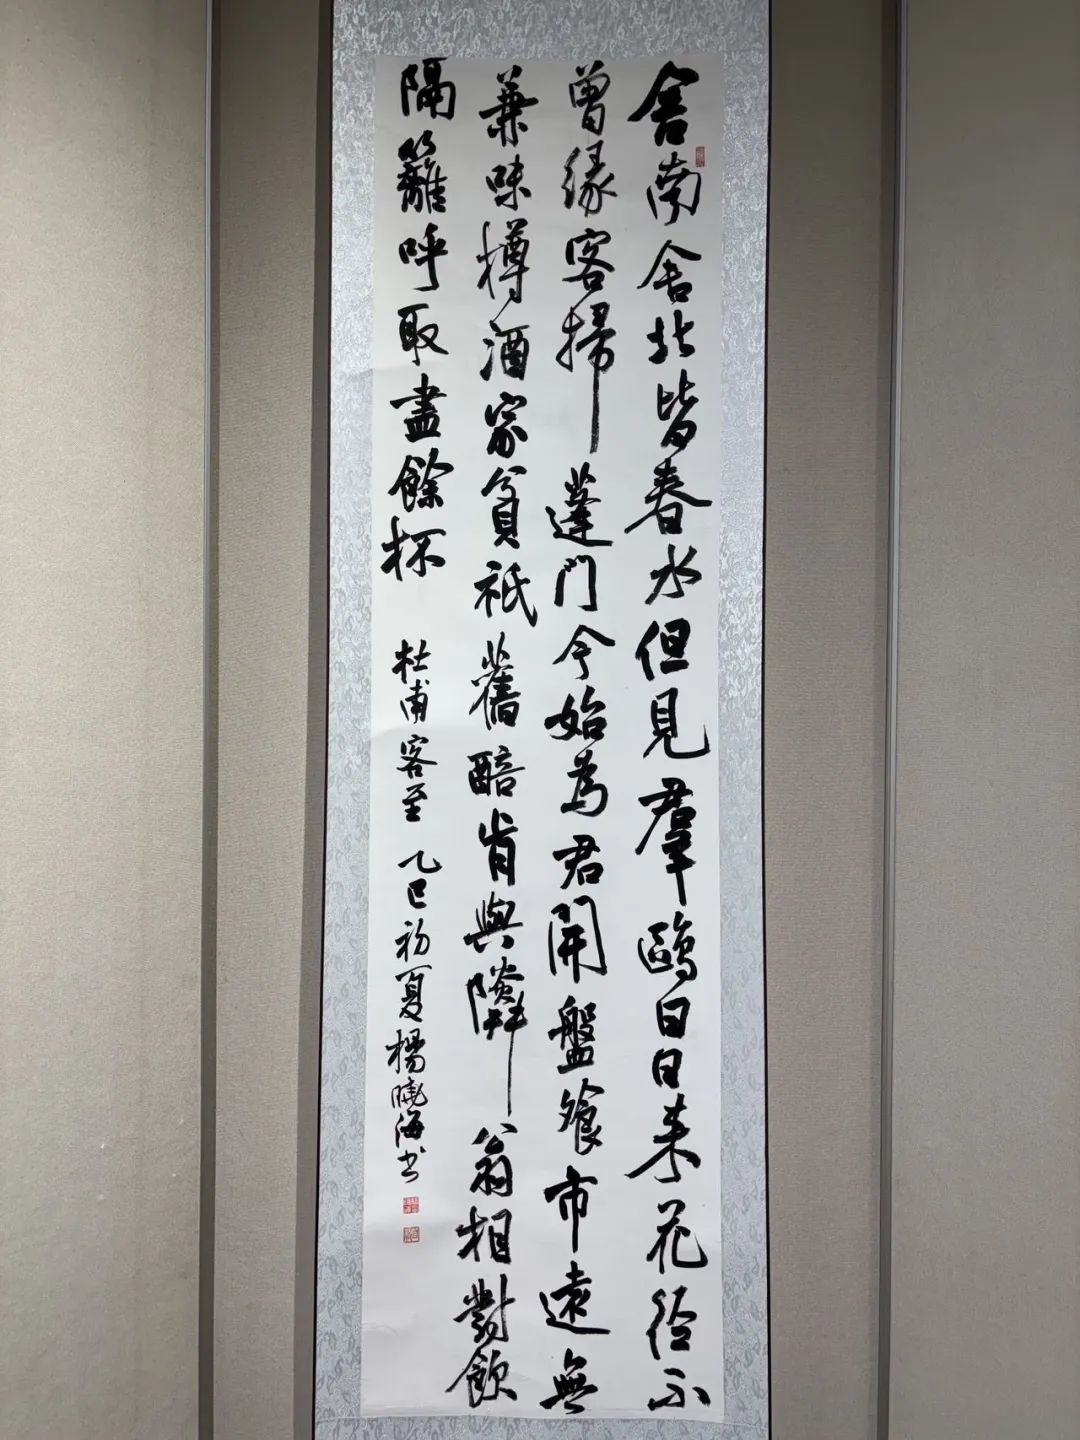 舍南舍北皆春水但見羣鷗日日来花徑不
曾緣客掃蓬門今始為君開盤飧市遠無
兼味樽酒家貧衹舊醅肯與隣翁相對飲
隔籬呼取盡餘杯
杜甫客至 乙巳初夏楊曉海书